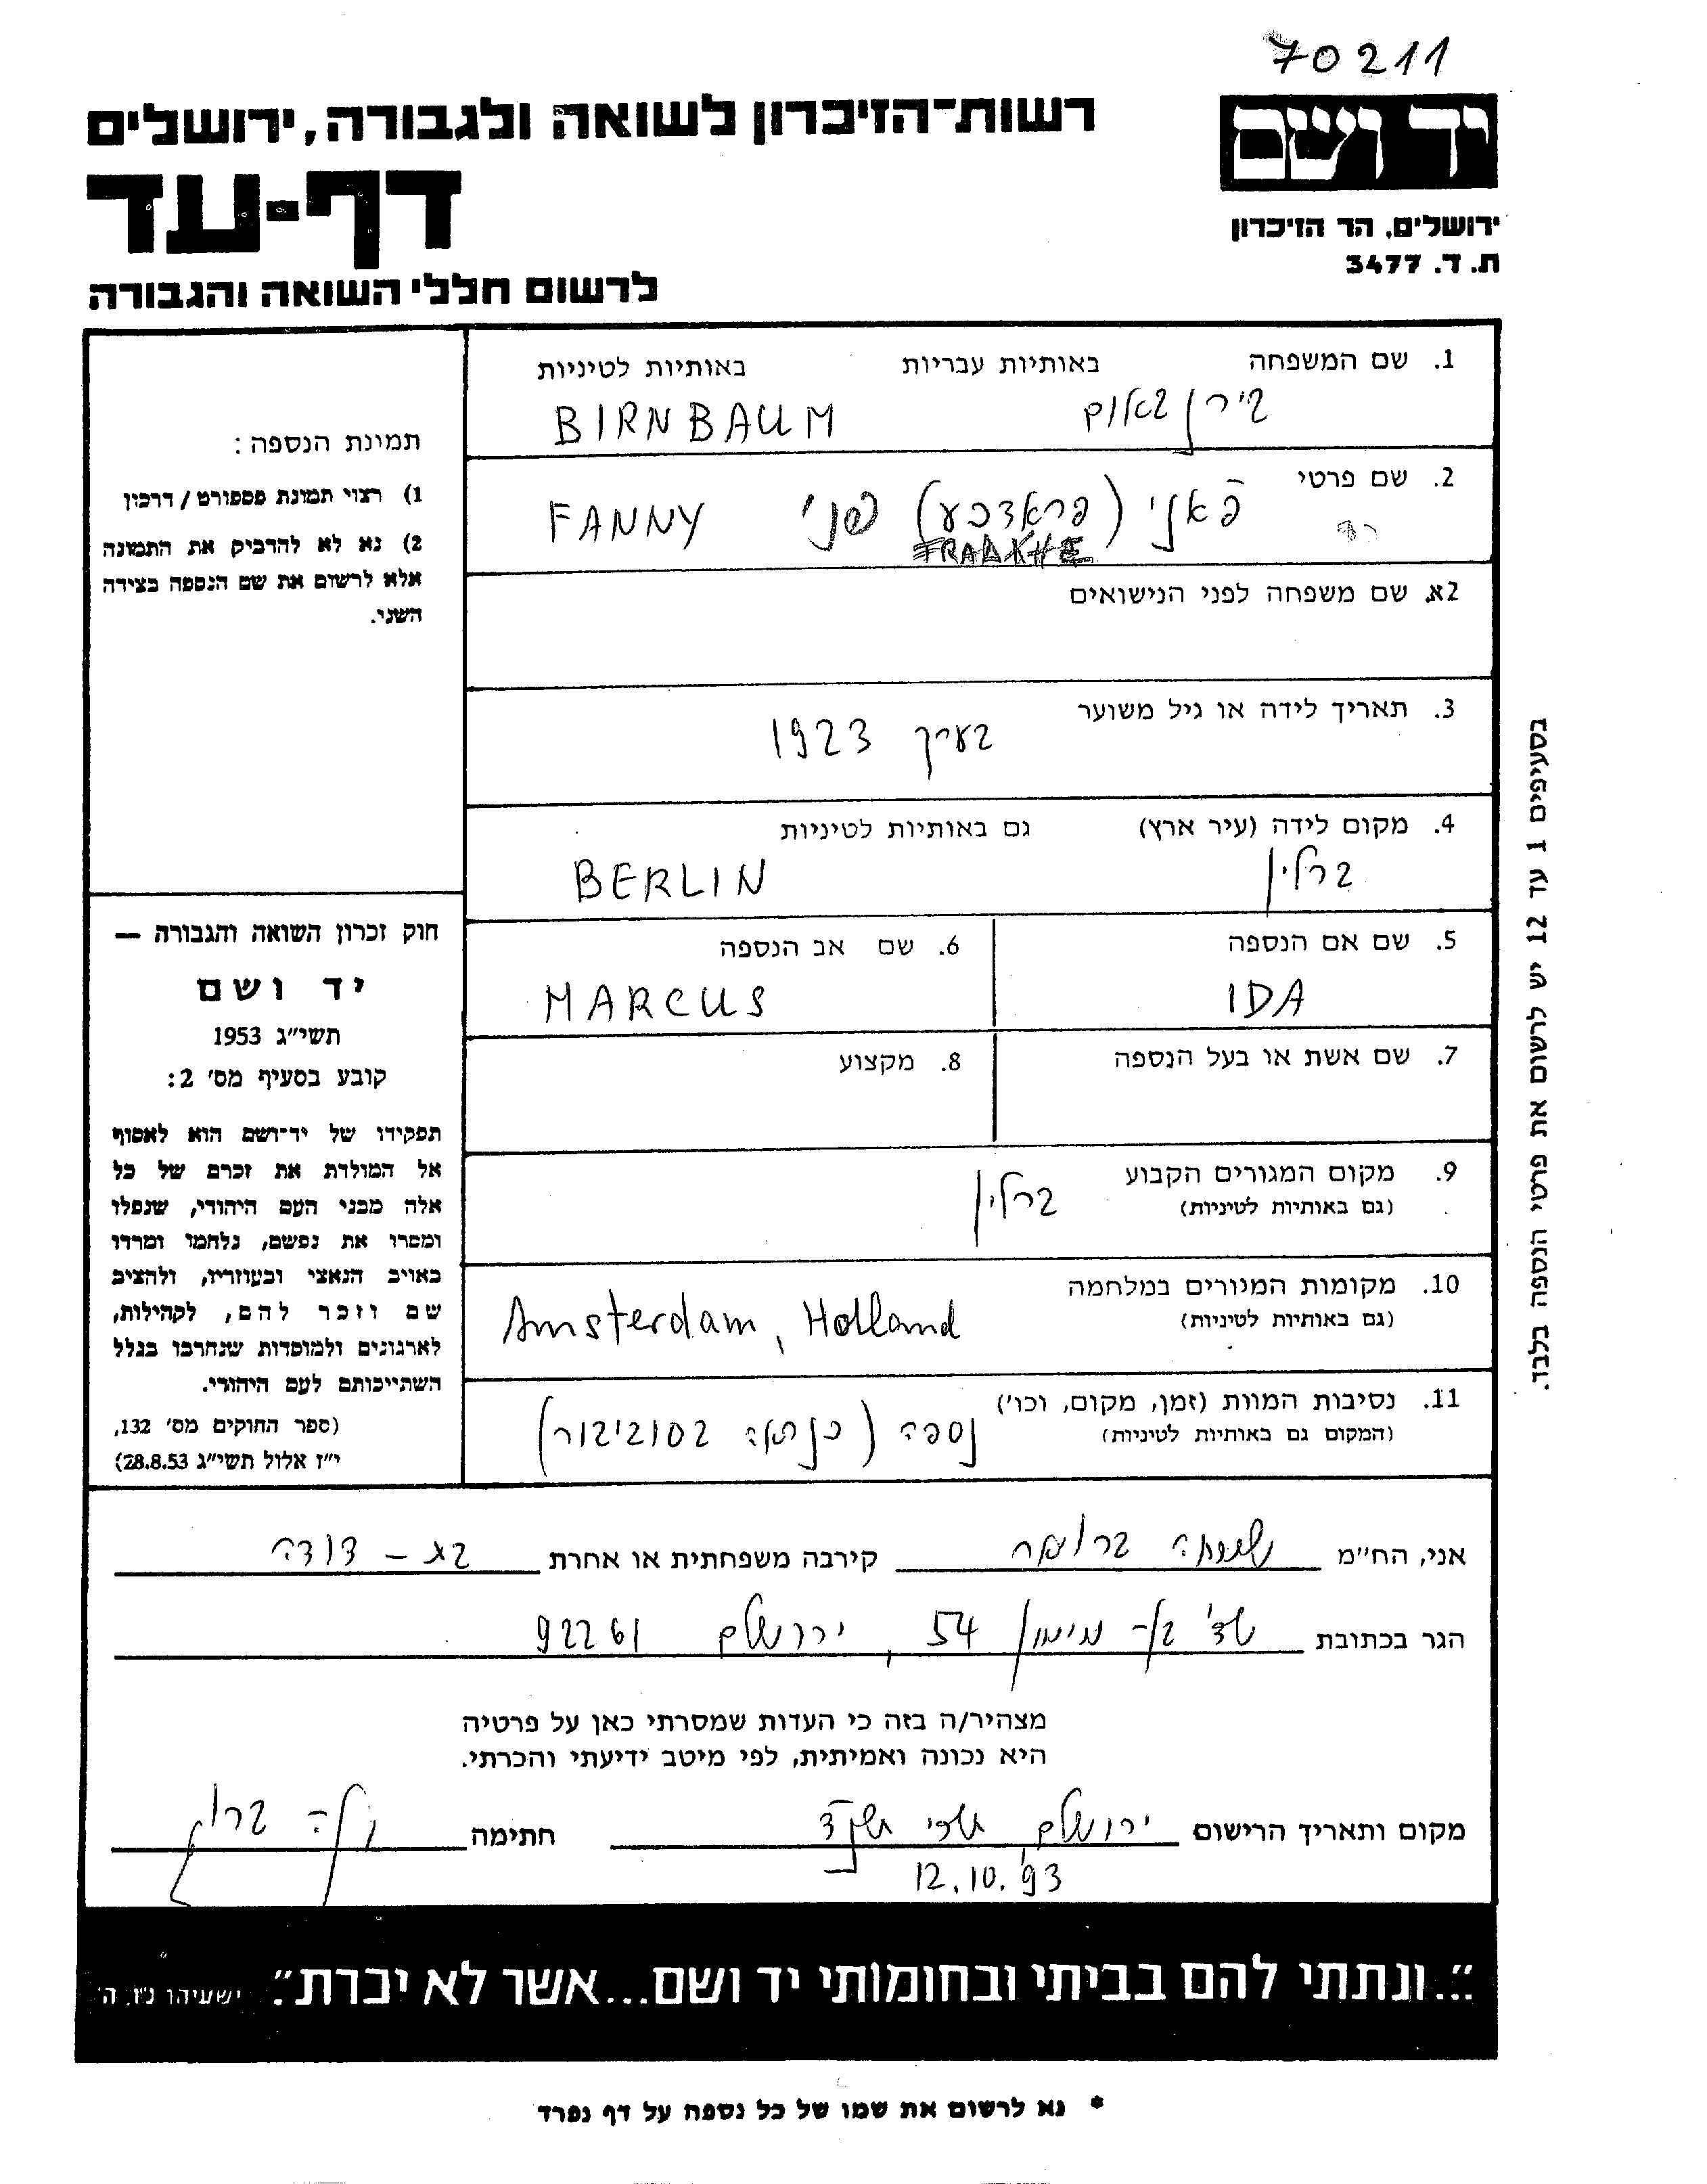 70211
יד ושם
רשות־הזיכרון לשואה ולגבורה, ירושלים
דף-עד
ירושלים, הר הזיכרון
ת. ד. 3477
לרשום חללי השואה והגבורה
1. שם המשפחה באותיות עבריות באותיות לטיניות
בירנבאום BIRNBAUM
2. שם פרטי
פאני (פראדכע) פני FANNY
FRADKHE
2א. שם משפחה לפני הנישואים
3. תאריך לידה או גיל משוער
בערך 1923
4. מקום לידה (עיר ארץ) גם באותיות לטיניות
ברלין BERLIN
5. שם אם הנספה 6. שם אב הנספה
IDA MARCUS
7. שם אשת או בעל הנספה 8. מקצוע
9. מקום המגורים הקבוע
(גם באותיות לטיניות)
ברלין
10. מקומות המגורים במלחמה
(גם באותיות לטיניות)
Amsterdam, Holland
11. נסיבות המוות (זמן, מקום, וכו')
(המקום גם באותיות לטיניות)
נספה (כנראה בסוביבור)
תמונת הנספה:
1) רצוי תמונת פספורט / דרכון
2) נא לא להדביק את התמונה
אלא לרשום את שם הנספה בצידה
השני.
חוק זכרון השואה והגבורה —
יד ושם
תשי"ג 1953
קובע בסעיף מס' 2:
תפקידו של יד־ושם הוא לאסוף
אל המולדת את זכרם של כל
אלה מבני העם היהודי, שנפלו
ומסרו את נפשם, נלחמו ומרדו
באויב הנאצי ובעוזריו, ולהציב
שם וזכר להם, לקהילות,
לארגונים ולמוסדות שנחרבו בגלל
השתייכותם לעם היהודי.
(ספר החוקים מס' 132,
י"ז אלול תשי"ג 28.8.53)
בסעיפים 1 עד 12 יש לרשום את פרטי הנספה בלבד.
אני, הח"מ קירבה משפחתית או אחרת בת-דודה
הגר בכתובת שד' בן-מימון 54, ירושלים 92261
מצהיר/ה בזה כי העדות שמסרתי כאן על פרטיה
היא נכונה ואמיתית, לפי מיטב ידיעתי והכרתי.
מקום ותאריך הרישום ירושלים תשרי תשנ"ד חתימה
12.10.93
"...ונתתי להם בביתי ובחומותי יד ושם...אשר לא יכרת". ישעיהו נ"ו, ה'
* נא לרשום את שמו של כל נספה על דף נפרד